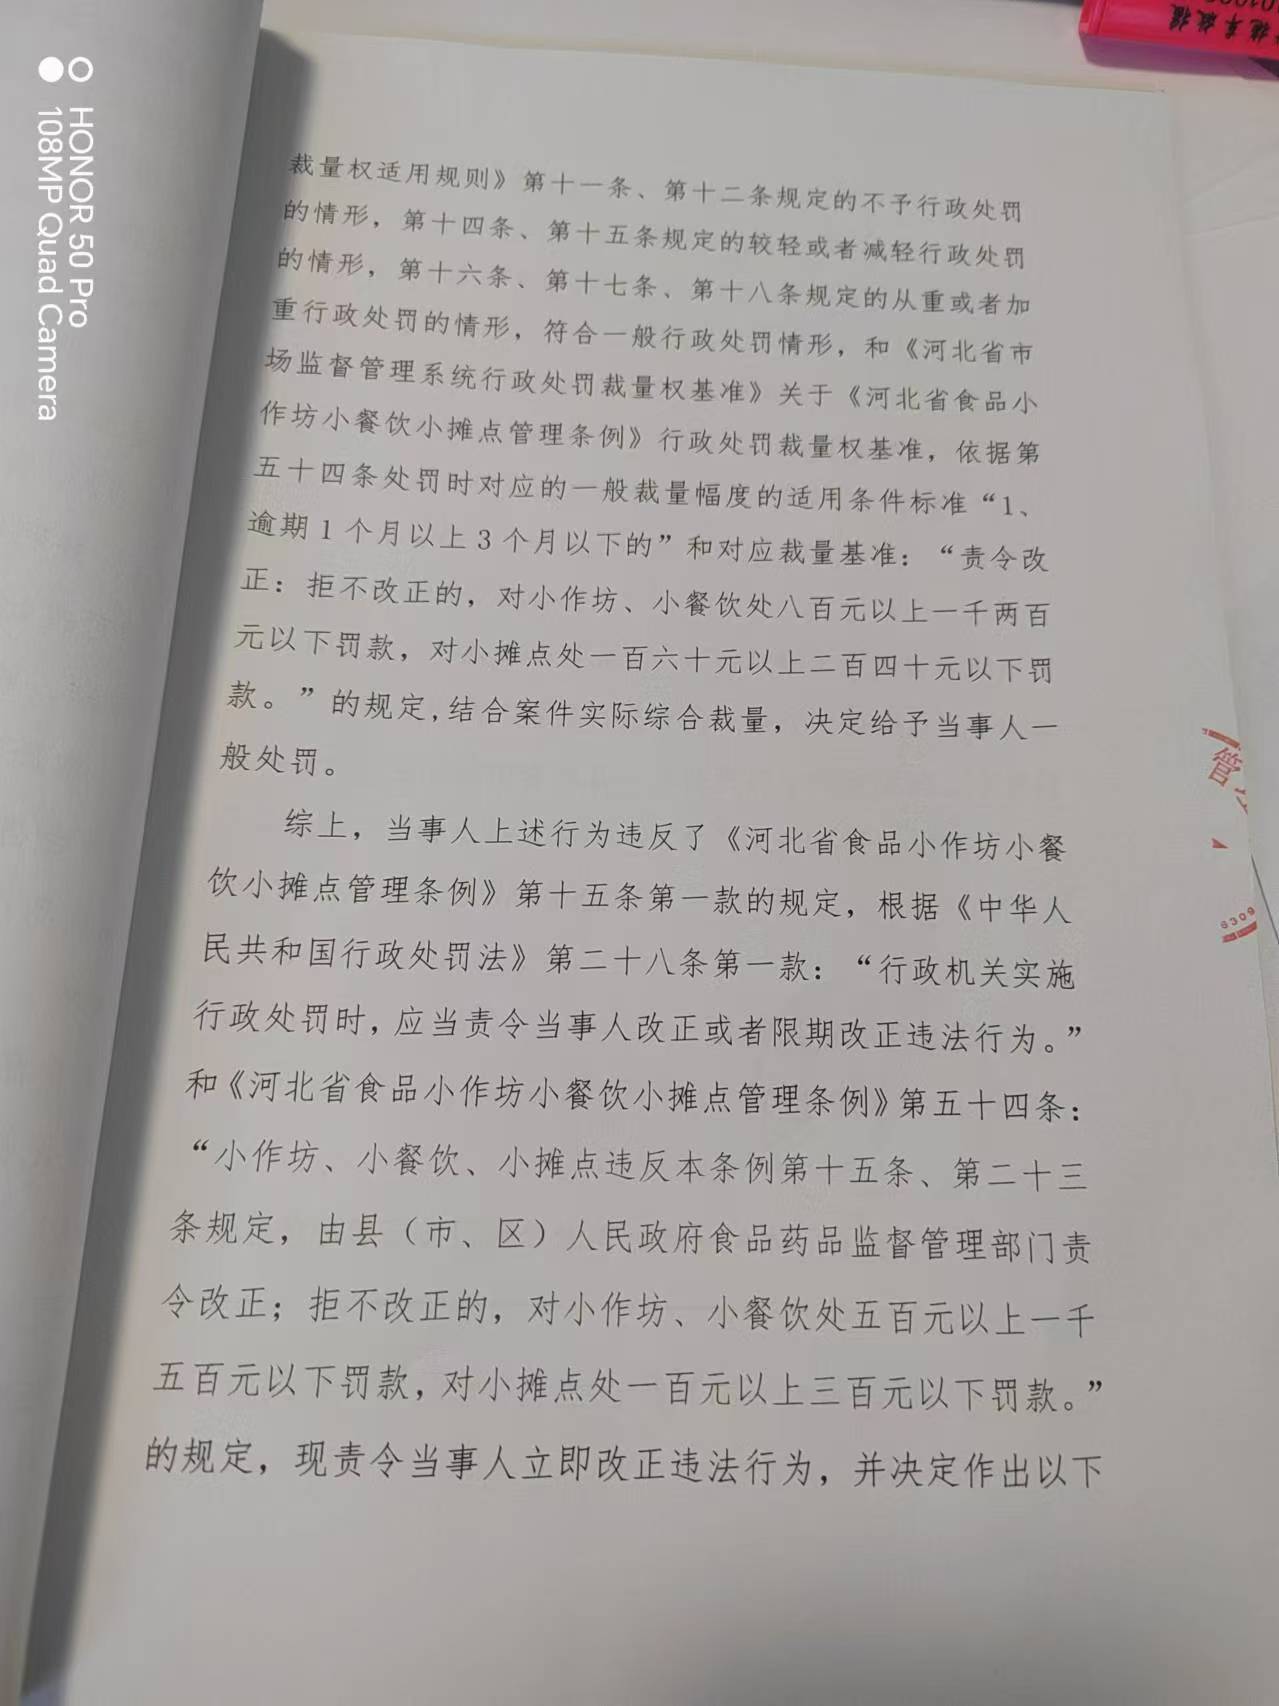 裁量权适用规则》第十一条、第十二条规定的不予行政处罚
的情形，第十四条、第十五条规定的较轻或者减轻行政处罚
的情形，第十六条、第十七条、第十八条规定的从重或者加
重行政处罚的情形，符合一般行政处罚情形，和《河北省市
场监督管理系统行政处罚裁量权基准》关于《河北省食品小
作坊小餐饮小摊点管理条例》行政处罚裁量权基准，依据第
五十四条处罚时对应的一般裁量幅度的适用条件标准“1、
逾期1个月以上3个月以下的”和对应裁量基准：“责令改
正：拒不改正的，对小作坊、小餐饮处八百元以上一千两百
元以下罚款，对小摊点处一百六十元以上二百四十元以下罚
款。”的规定,结合案件实际综合裁量，决定给予当事人一
般处罚。
综上，当事人上述行为违反了《河北省食品小作坊小餐
饮小摊点管理条例》第十五条第一款的规定，根据《中华人
民共和国行政处罚法》第二十八条第一款：“行政机关实施
行政处罚时，应当责令当事人改正或者限期改正违法行为。”
和《河北省食品小作坊小餐饮小摊点管理条例》第五十四条：
“小作坊、小餐饮、小摊点违反本条例第十五条、第二十三
条规定，由县（市、区）人民政府食品药品监督管理部门责
令改正；拒不改正的，对小作坊、小餐饮处五百元以上一千
五百元以下罚款，对小摊点处一百元以上三百元以下罚款。”
的规定，现责令当事人立即改正违法行为，并决定作出以下
HONOR 50 Pro
108MP Quad Camera
管
6309